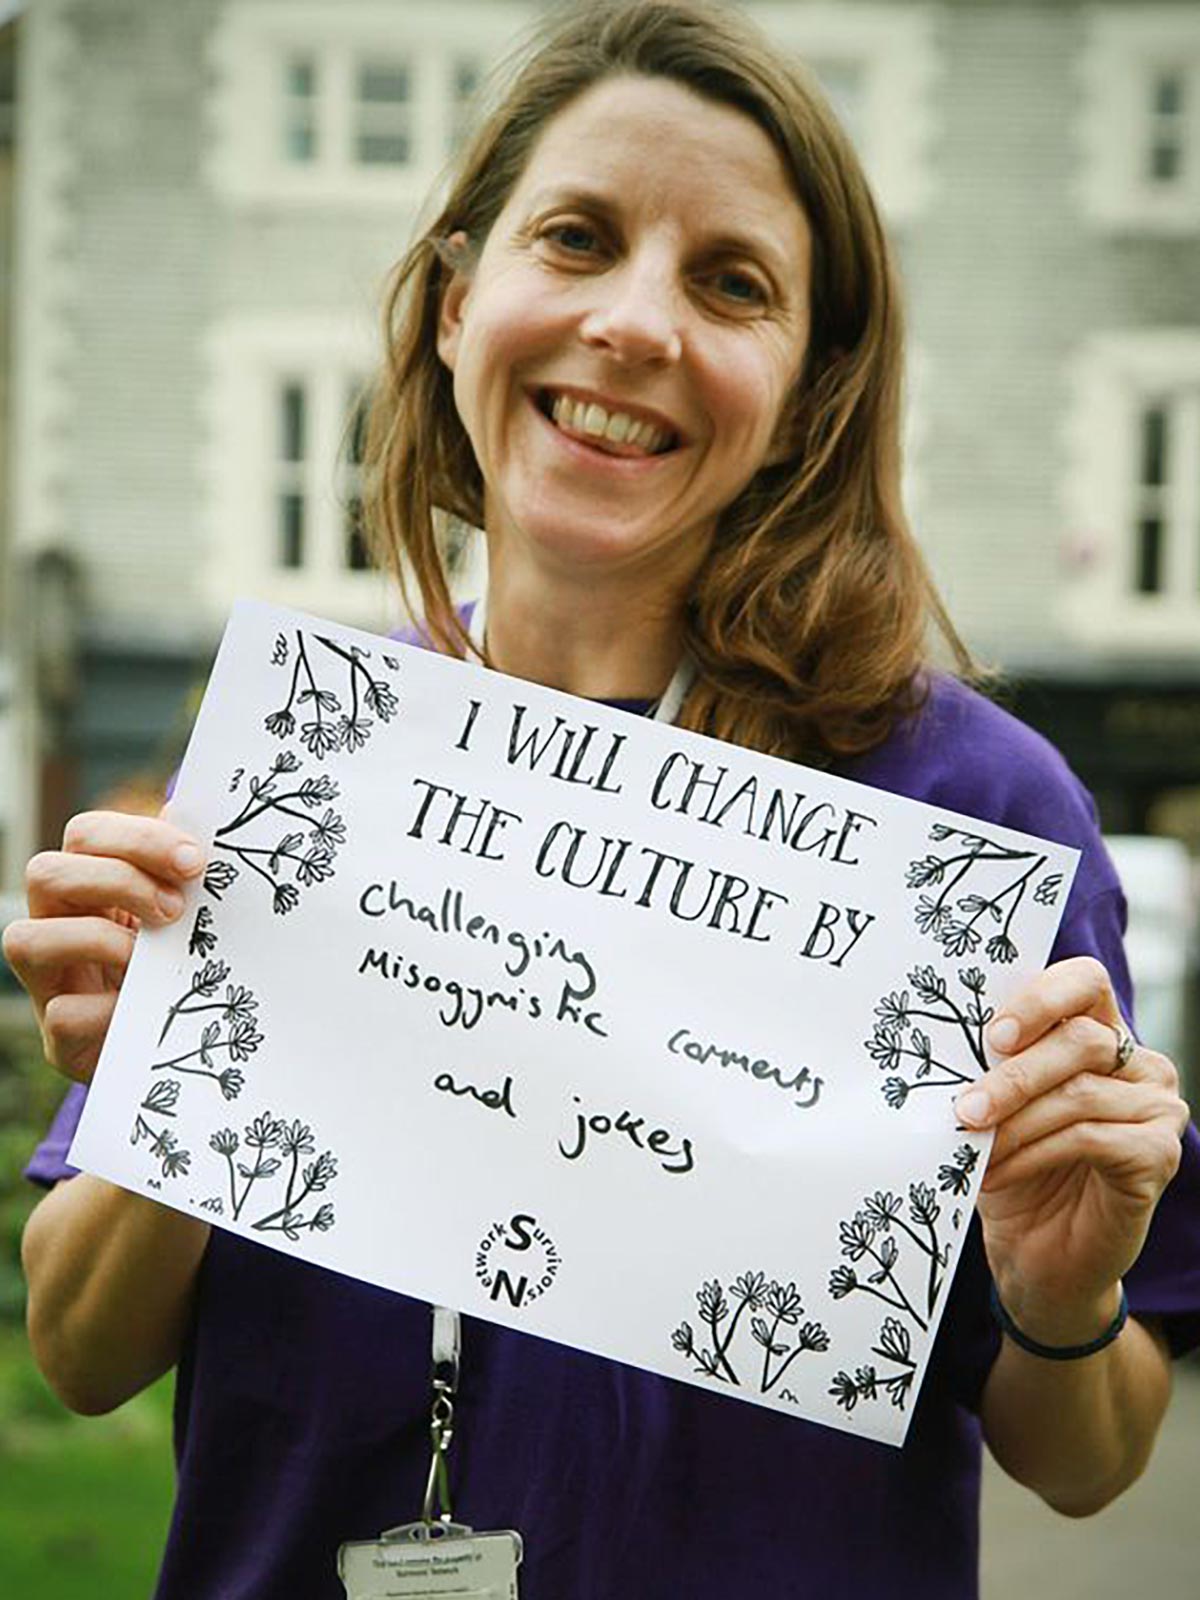 I WILL CHANGE
THE CULTURE BY
Challenging
Misogynistic comments
and jokes
Survivors' Network
SN